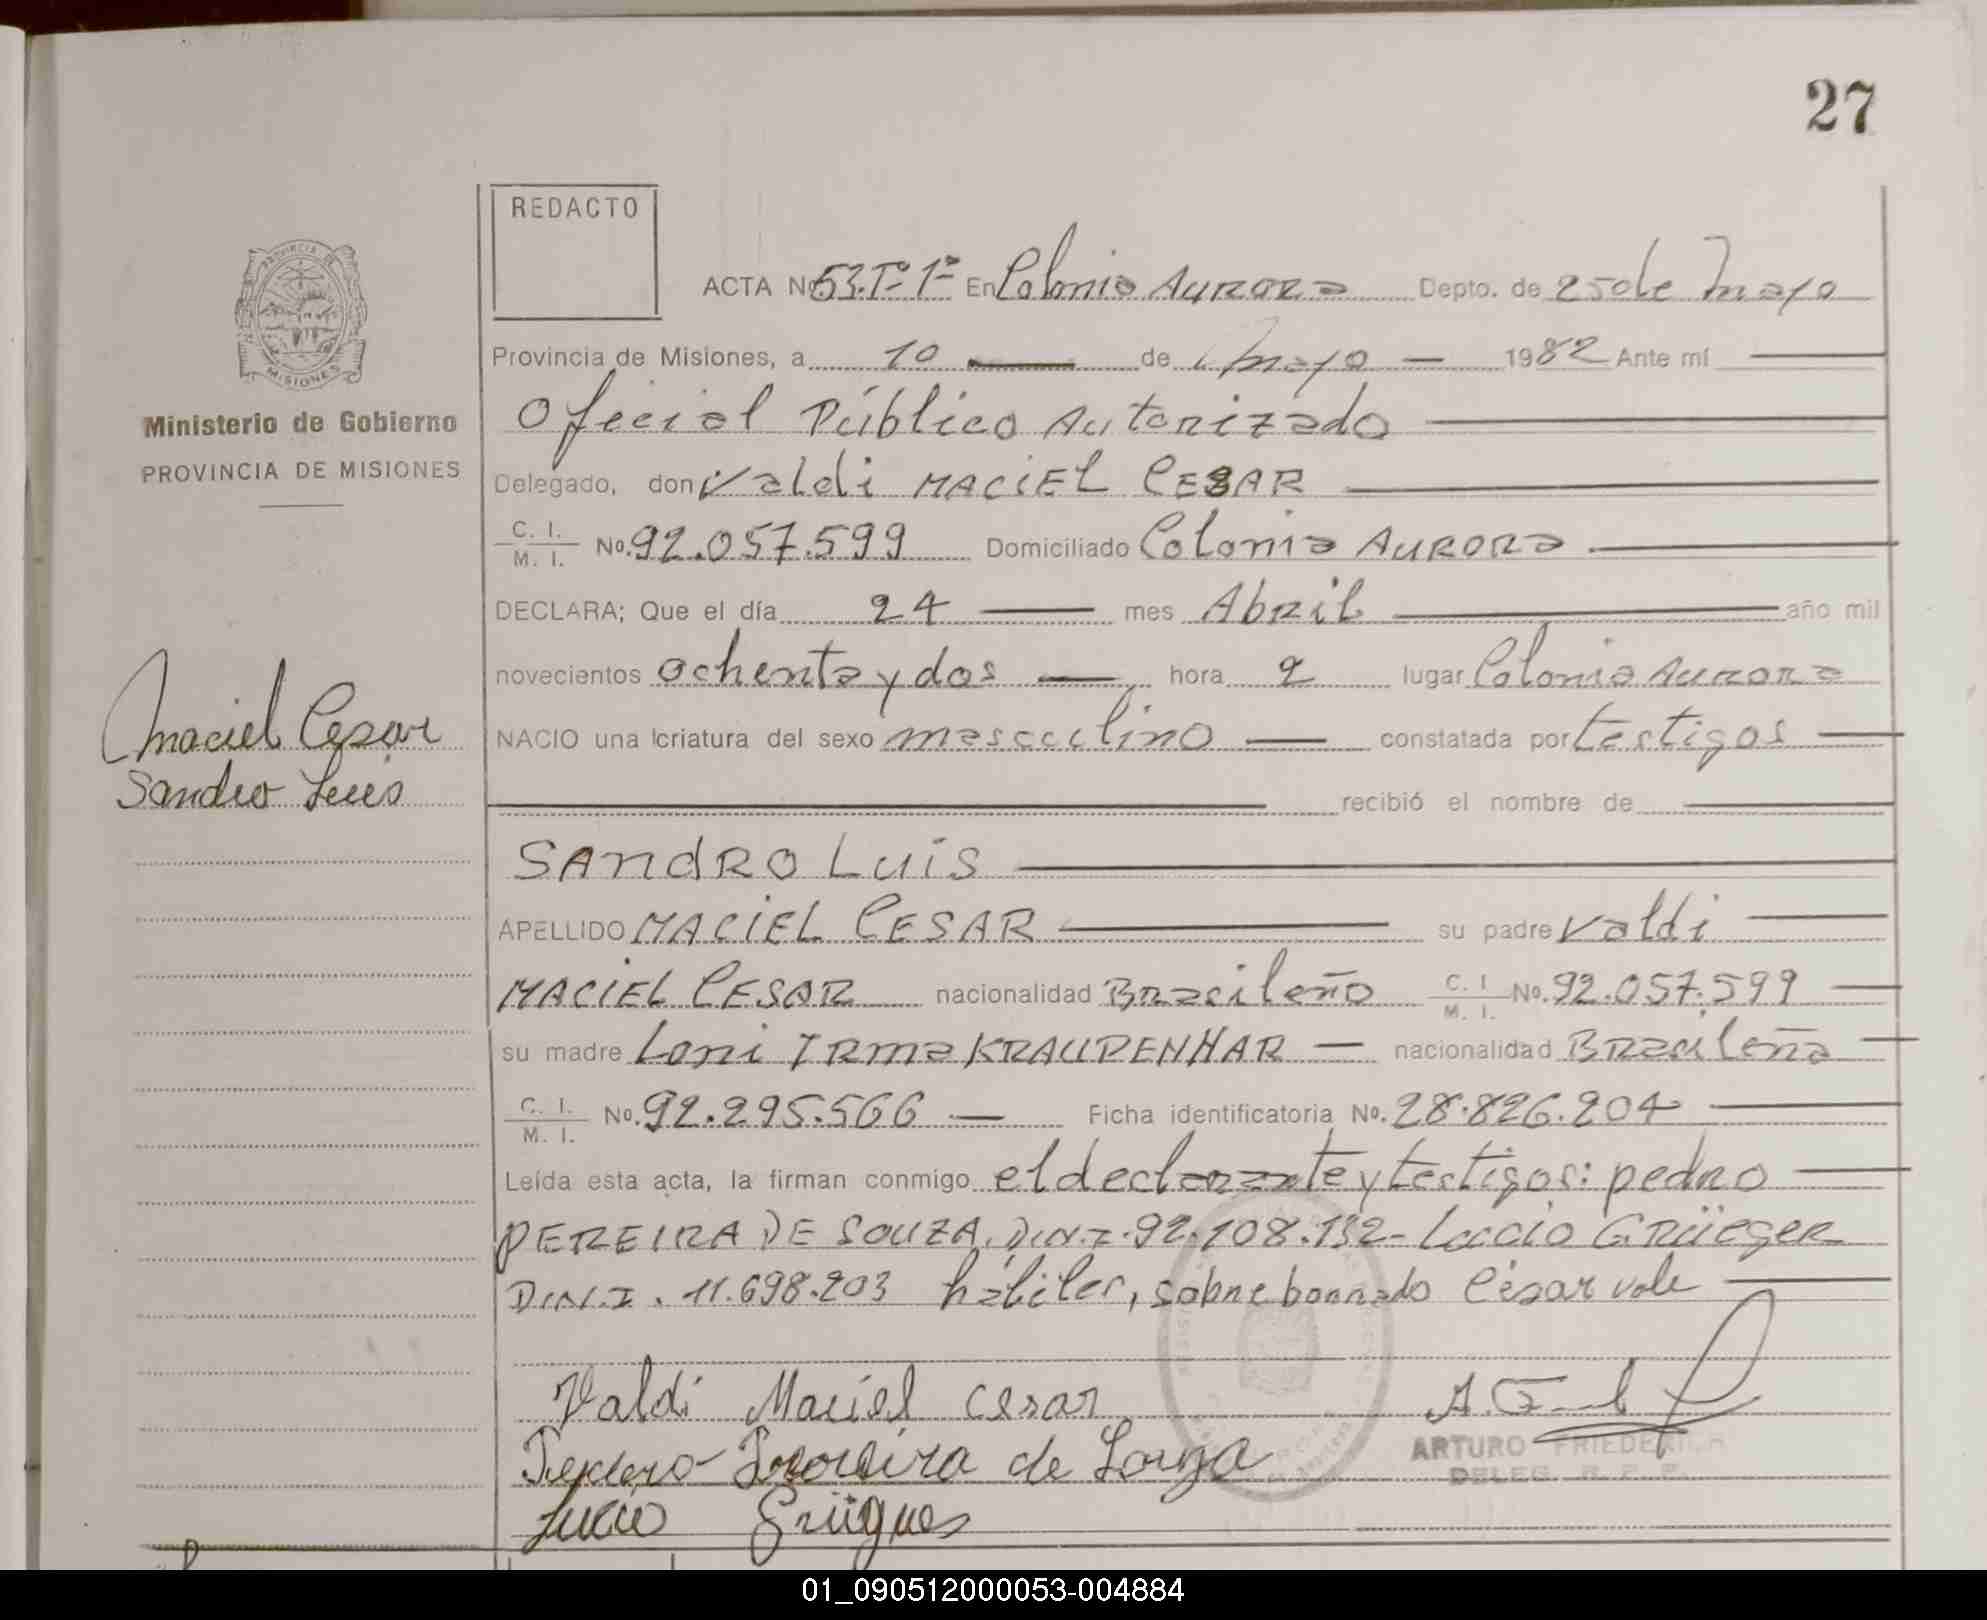 27
REDACTO
ACTA No 53.Tº 1º En Colonia Aurora Depto. de 25 de Mayo
Provincia de Misiones, a 10 de Mayo 1982 Ante mí
Oficial Público Autorizado
Ministerio de Gobierno
PROVINCIA DE MISIONES
Delegado, don Valdi MACIEL CESAR
C. I. / M. I. No. 92.057.599 Domiciliado Colonia AURORA
DECLARA; Que el día 24 mes Abril año mil
novecientos ochenta y dos hora 2 lugar Colonia Aurora
Maciel Cesar
Sandro Luis
NACIO una criatura del sexo masculino constatada por testigos
recibió el nombre de
SANDRO LUIS
APELLIDO MACIEL CESAR su padre Valdi
MACIEL CESAR nacionalidad Brasileño C. I / M. I. No. 92.057.599
su madre Loni Irma KRAUPENHAR nacionalidad Brasileña
C. I. / M. I. No. 92.295.566 Ficha identificatoria No. 28.826.204
Leída esta acta, la firman conmigo el declarante y testigos: pedro
PEREIRA DE SOUZA, D.N.I. 92.108.132- Lucio GRÜEGER
D.N.I. 11.698.203 hábiles, sobre borrado César vale
Valdi Maciel Cesar
Pedro Pereira de Souza
Lucio
ARTURO FRIEDERICH
DELEG. R. P. P.
MISIONES
01_090512000053-004884